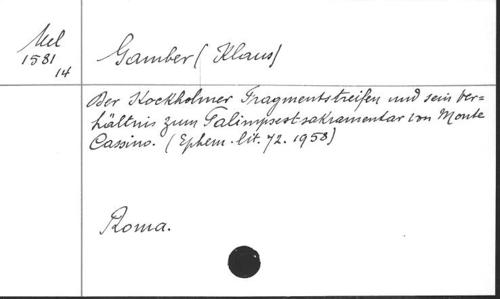 Mel
1581
14
Gamber ( Klaus)
Der Stockholmer Fragmentstreifen und sein Ver=
hältnis zum Palimpsestsakramentar von Monte
Cassino. ( Ephem. lit. 72. 1958)
Roma.